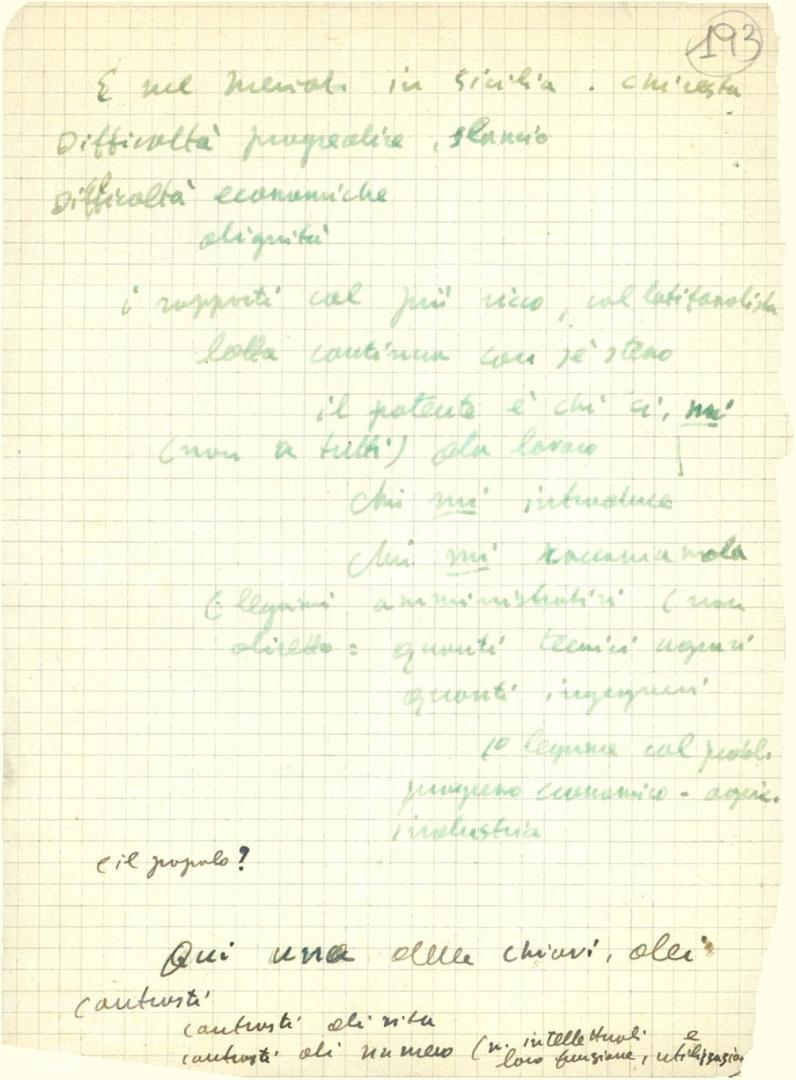 193
E nel Merid. in Sicilia. chi resta
Difficoltà progredire, slancio
Difficoltà economiche
dignità
i rapporti col più ricco, col latifondista
lotta continua con sé stesso
il potente è chi ci, mi
(non a tutti) da lavoro
chi mi introduce
chi mi raccomanda
(legami amministrativi (non
diretto = quanti tecnici agrari
quanti ingegneri
1° legame col probl.
progresso economico - agric.
industria
e il popolo?
Qui una delle chiavi, dei
contrasti
contrasti di vita
contrasti di numero (n. intellettuali e
loro funzione, utilizzazion